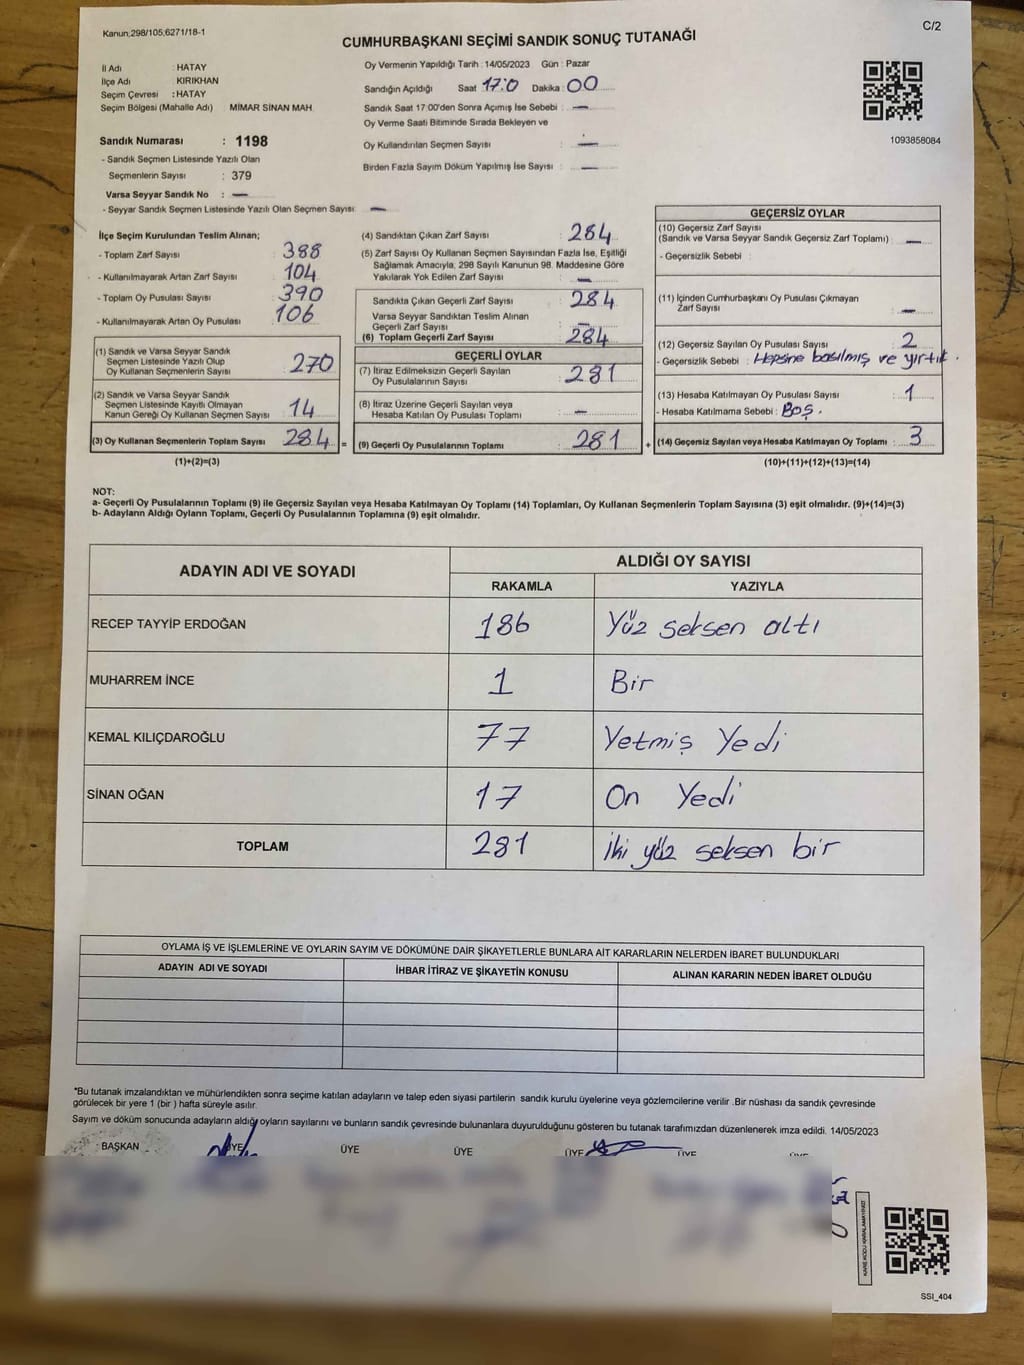 Kanun;298/105;6271/18-1
C/2
CUMHURBAŞKANI SEÇİMİ SANDIK SONUÇ TUTANAĞI
İl Adı : HATAY
İlçe Adı : KIRIKHAN
Seçim Çevresi : HATAY
Seçim Bölgesi (Mahalle Adı) MİMAR SİNAN MAH.
Oy Vermenin Yapıldığı Tarih : 14/05/2023 Gün : Pazar
Sandığın Açıldığı Saat 17:0 Dakika : 00
Sandık Saat 17:00'den Sonra Açımış İse Sebebi : —
Oy Verme Saati Bitiminde Sırada Bekleyen ve
Oy Kullandırılan Seçmen Sayısı : —
Birden Fazla Sayım Döküm Yapılmış İse Sayısı : —
1093858084
Sandık Numarası : 1198
- Sandık Seçmen Listesinde Yazılı Olan
Seçmenlerin Sayısı : 379
Varsa Seyyar Sandık No : —
- Seyyar Sandık Seçmen Listesinde Yazılı Olan Seçmen Sayısı —
İlçe Seçim Kurulundan Teslim Alınan;
- Toplam Zarf Sayısı : 388
- Kullanılmayarak Artan Zarf Sayısı : 104
- Toplam Oy Pusulası Sayısı : 390
- Kullanılmayarak Artan Oy Pusulası : 106
(1) Sandık ve Varsa Seyyar Sandık
Seçmen Listesinde Yazılı Olup
Oy Kullanan Seçmenlerin Sayısı : 270
(2) Sandık ve Varsa Seyyar Sandık
Seçmen Listesinde Kayıtlı Olmayan
Kanun Gereği Oy Kullanan Seçmen Sayısı : 14
(3) Oy Kullanan Seçmenlerin Toplam Sayısı : 284 =
(1)+(2)=(3)
(4) Sandıktan Çıkan Zarf Sayısı : 284
(5) Zarf Sayısı Oy Kullanan Seçmen Sayısından Fazla İse, Eşitliği
Sağlamak Amacıyla, 298 Sayılı Kanunun 98. Maddesine Göre
Yakılarak Yok Edilen Zarf Sayısı : —
Sandıkta Çıkan Geçerli Zarf Sayısı : 284
Varsa Seyyar Sandıktan Teslim Alınan
Geçerli Zarf Sayısı : —
(6) Toplam Geçerli Zarf Sayısı : 284
GEÇERLİ OYLAR
(7) İtiraz Edilmeksizin Geçerli Sayılan
Oy Pusulalarının Sayısı : 281
(8) İtiraz Üzerine Geçerli Sayılan veya
Hesaba Katılan Oy Pusulası Toplamı : —
(9) Geçerli Oy Pusulalarının Toplamı : 281 +
GEÇERSİZ OYLAR
(10) Geçersiz Zarf Sayısı
(Sandık ve Varsa Seyyar Sandık Geçersiz Zarf Toplamı) : —
- Geçersizlik Sebebi :
(11) İçinden Cumhurbaşkanı Oy Pusulası Çıkmayan
Zarf Sayısı : —
(12) Geçersiz Sayılan Oy Pusulası Sayısı : 2
- Geçersizlik Sebebi : Hepsine basılmış ve yırtık.
(13) Hesaba Katılmayan Oy Pusulası Sayısı : 1
- Hesaba Katılmama Sebebi : BOŞ.
(14) Geçersiz Sayılan veya Hesaba Katılmayan Oy Toplamı : 3
(10)+(11)+(12)+(13)=(14)
NOT:
a- Geçerli Oy Pusulalarının Toplamı (9) ile Geçersiz Sayılan veya Hesaba Katılmayan Oy Toplamı (14) Toplamları, Oy Kullanan Seçmenlerin Toplam Sayısına (3) eşit olmalıdır. (9)+(14)=(3)
b- Adayların Aldığı Oyların Toplamı, Geçerli Oy Pusulalarının Toplamına (9) eşit olmalıdır.
ADAYIN ADI VE SOYADI
ALDIĞI OY SAYISI
RAKAMLA YAZIYLA
RECEP TAYYİP ERDOĞAN 186 Yüz seksen altı
MUHARREM İNCE 1 Bir
KEMAL KILIÇDAROĞLU 77 Yetmiş Yedi
SİNAN OĞAN 17 On Yedi
TOPLAM 281 İki yüz seksen bir
OYLAMA İŞ VE İŞLEMLERİNE VE OYLARIN SAYIM VE DÖKÜMÜNE DAİR ŞİKAYETLERLE BUNLARA AİT KARARLARIN NELERDEN İBARET BULUNDUKLARI
ADAYIN ADI VE SOYADI İHBAR İTİRAZ VE ŞİKAYETİN KONUSU ALINAN KARARIN NEDEN İBARET OLDUĞU
*Bu tutanak imzalandıktan ve mühürlendikten sonra seçime katılan adayların ve talep eden siyasi partilerin sandık kurulu üyelerine veya gözlemcilerine verilir .Bir nüshası da sandık çevresinde
görülecek bir yere 1 (bir ) hafta süreyle asılır.
Sayım ve döküm sonucunda adayların aldığı oyların sayılarını ve bunların sandık çevresinde bulunanlara duyurulduğunu gösteren bu tutanak tarafımızdan düzenlenerek imza edildi. 14/05/2023
BAŞKAN ÜYE ÜYE ÜYE ÜYE ÜYE ÜYE
KARE KODU KARALAMAYINIZ!
SSI_404